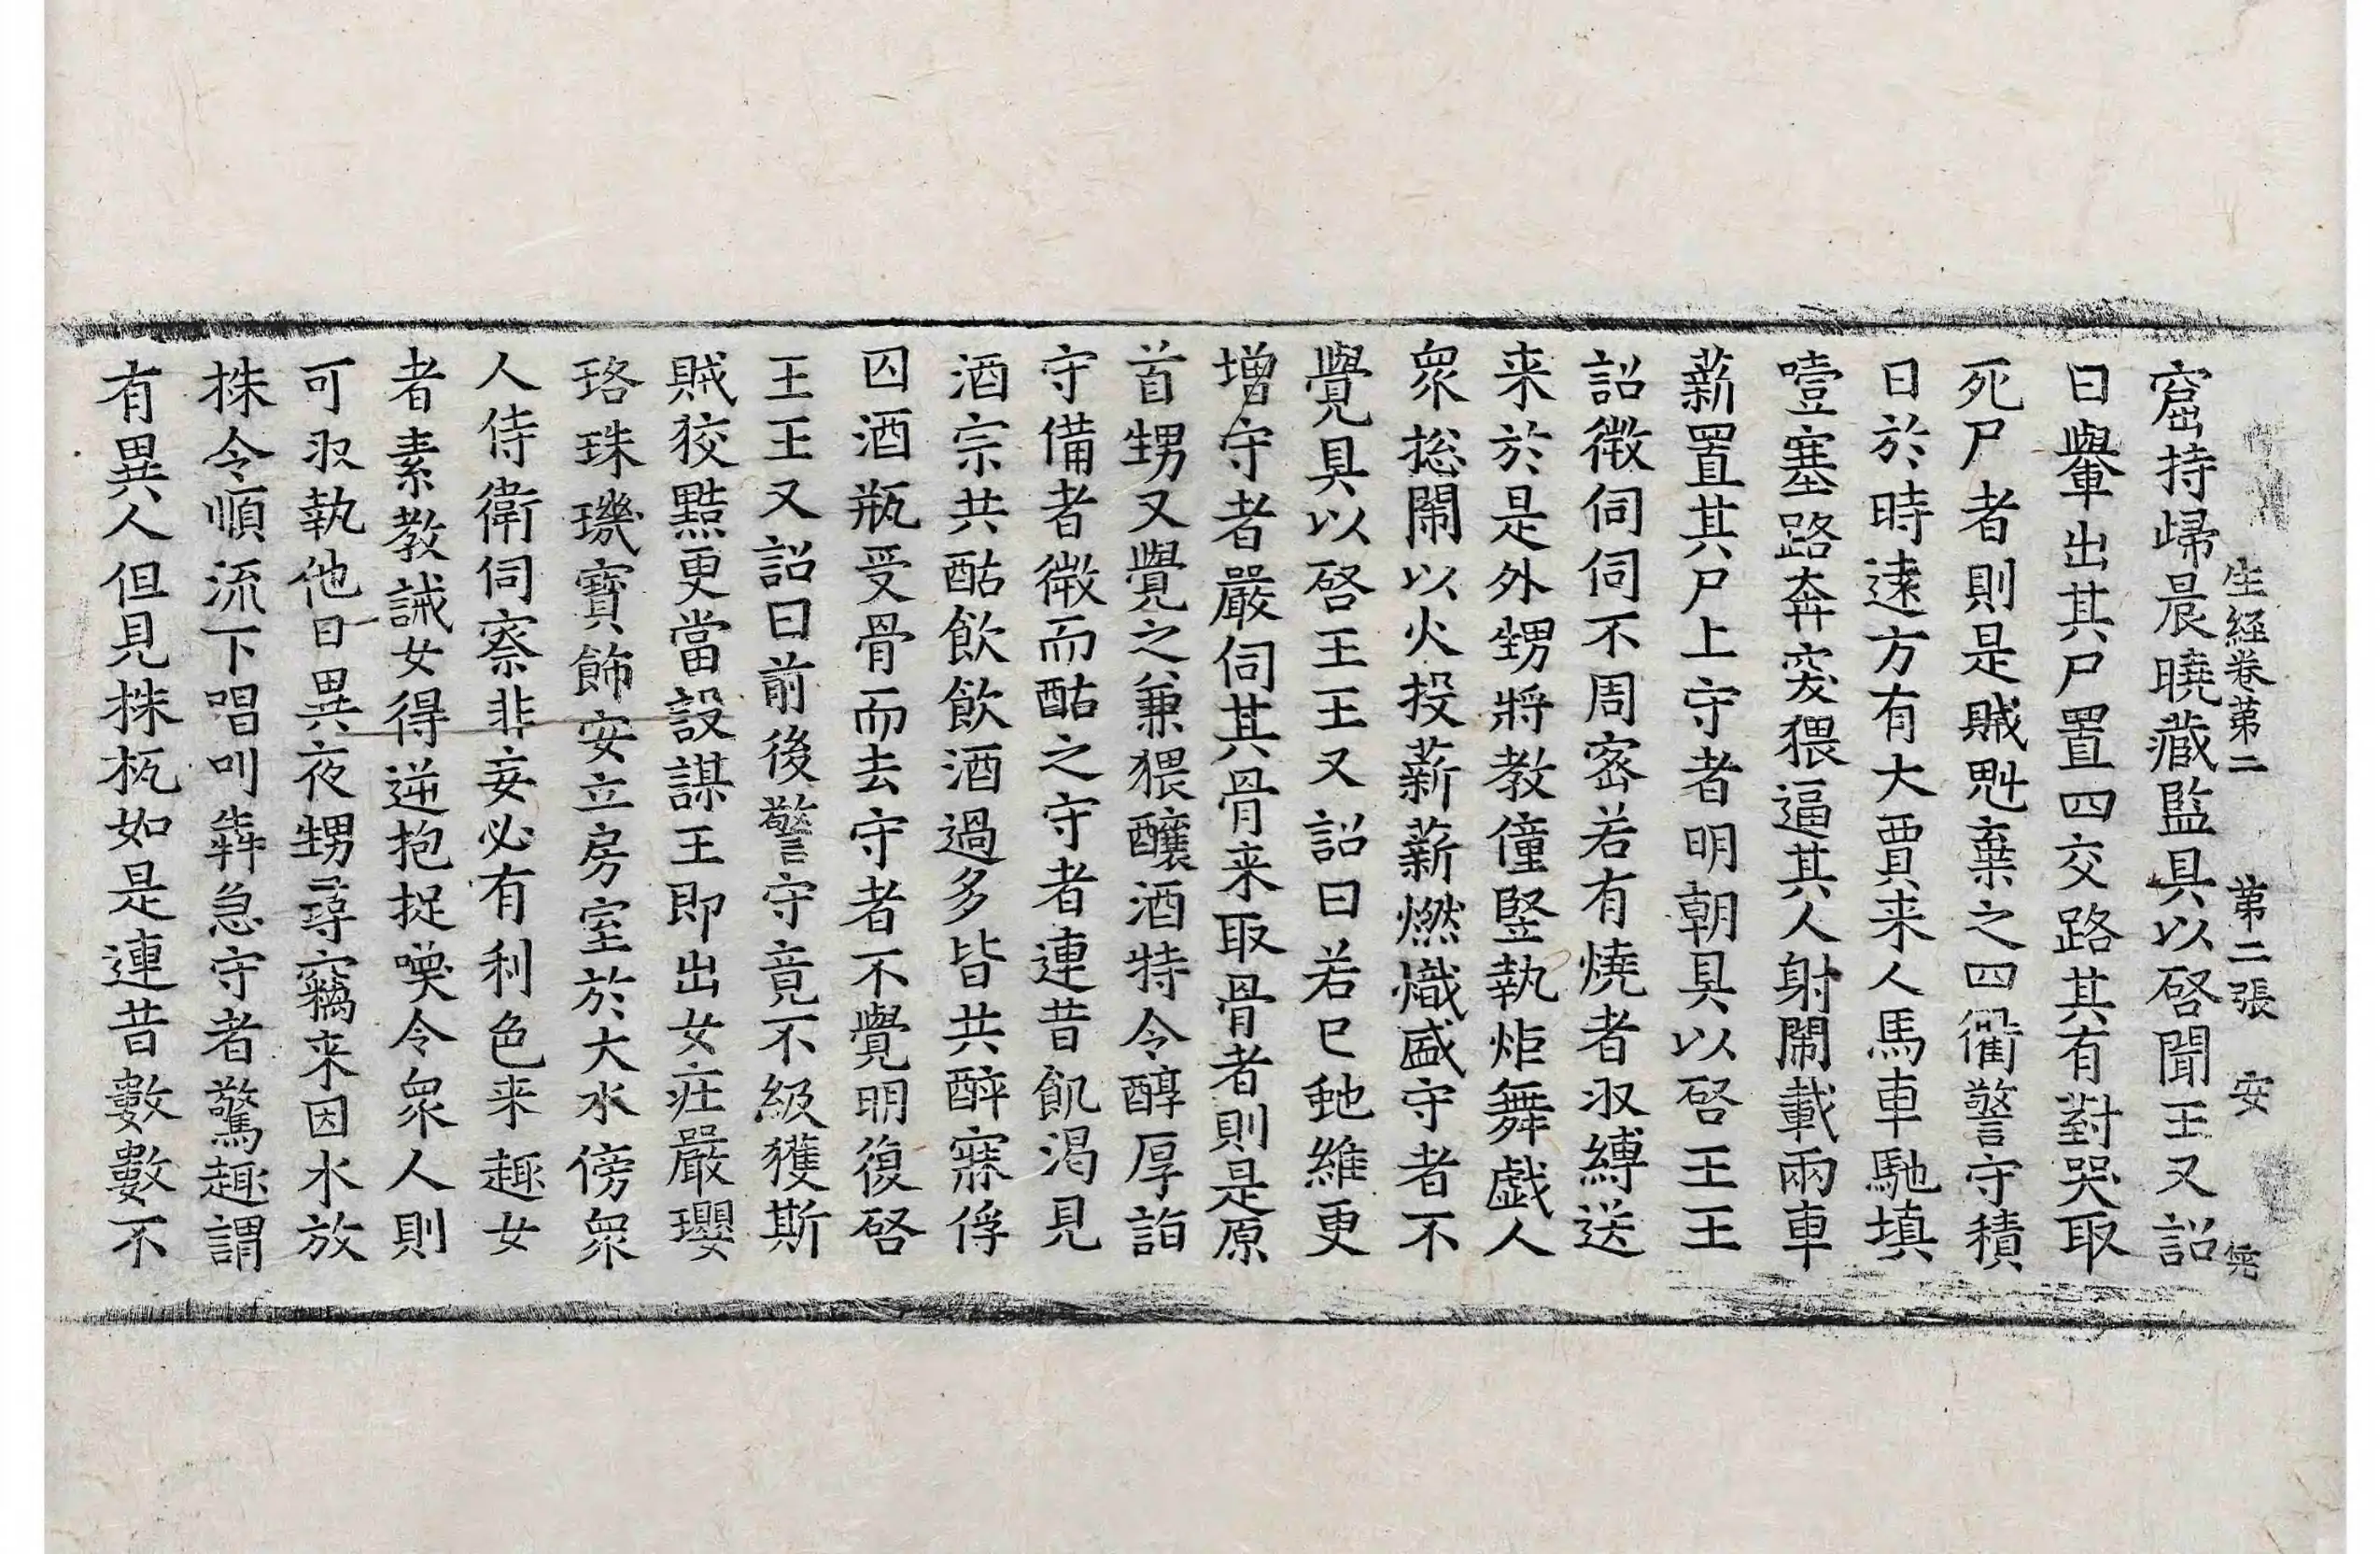 生經卷第二 第二張 安
窟持歸晨曉藏監具以啓聞王又詔
曰轝出其尸置四交路其有對哭取
死尸者則是賊魁棄之四衢警守積
日於時遠方有大賈来人馬車馳填
噎塞路奔突猥逼其人射鬧載兩車
薪置其尸上守者明朝具以啓王王
詔微伺伺不周密若有燒者収縛送
来於是外甥將教僮竪執炬舞戯人
衆揔鬧以火投薪薪燃熾盛守者不
覺具以啓王王又詔曰若已虵維更
增守者嚴伺其骨来取骨者則是原
首甥又覺之兼猥釀酒特令醇厚詣
守備者微而酤之守者連昔飢渴見
酒宗共酤飲飲酒過多皆共醉寐俘
囚酒瓶受骨而去守者不覺明復啓
王王又詔曰前後警守竟不級獲斯
賊狡黠更當設謀王即出女荘嚴瓔
珞珠璣寶飾安立房室於大水傍衆
人侍衛伺察非妄必有利色来趣女
者素教誡女得逆抱捉喚令衆人則
可収執他日異夜甥尋竊来因水放
株令順流下唱叫犇急守者驚趣謂
有異人但見株杌如是連昔數數不